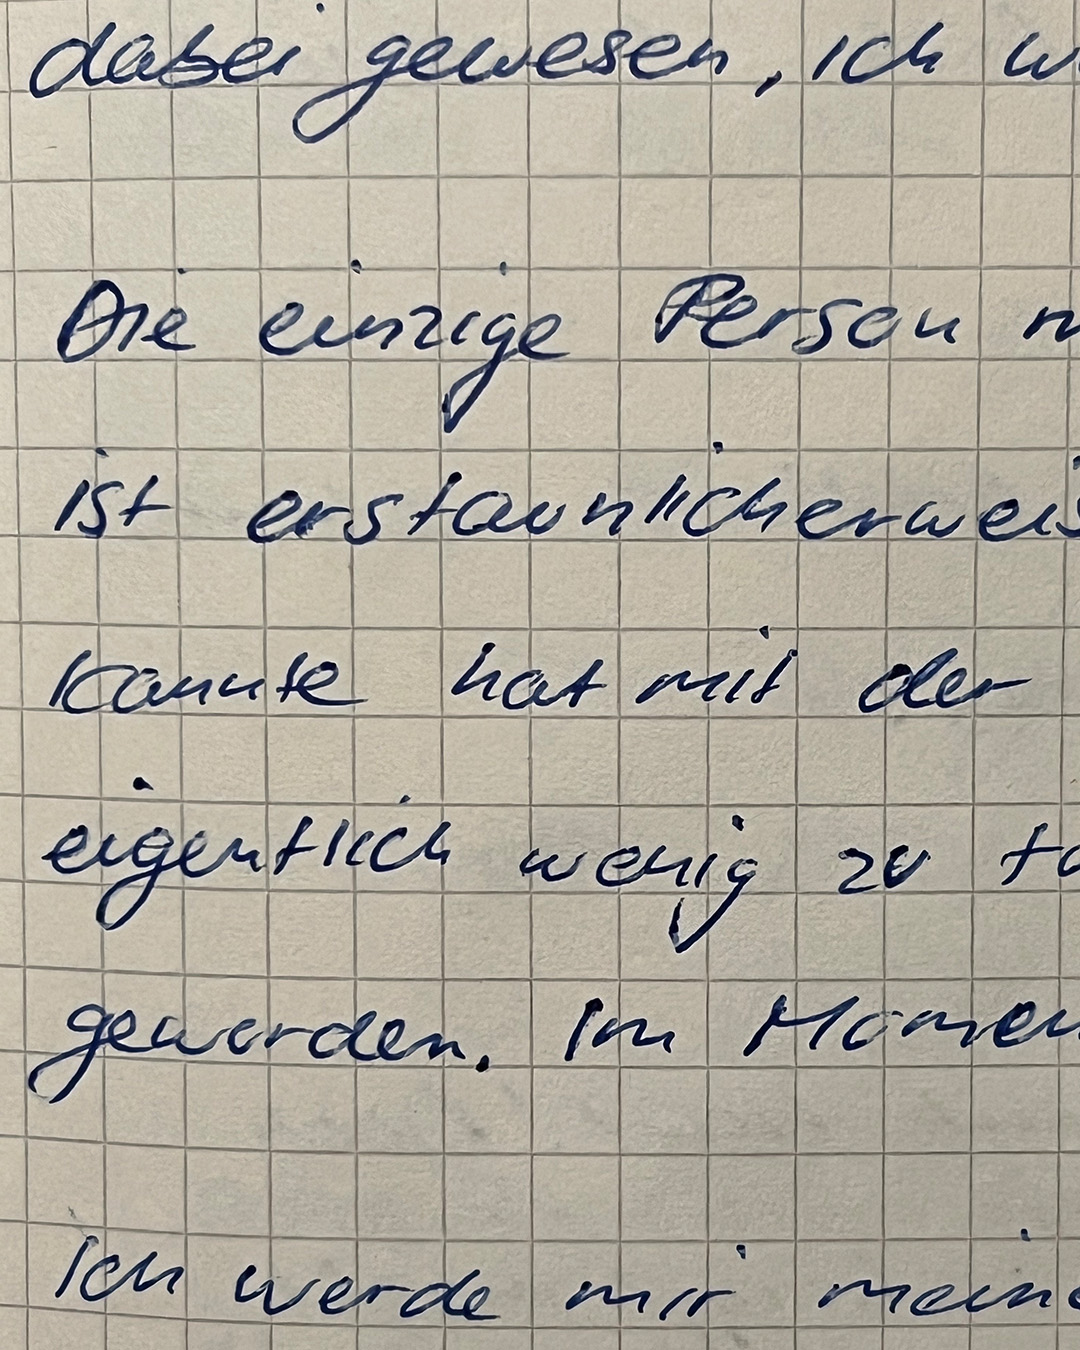 dabei gewesen, ich
Die einzige Person
ist erstaunlicherweis
kannte hat mit der
eigentlich wenig zu
geworden. Im Momen
Ich werde mir meine